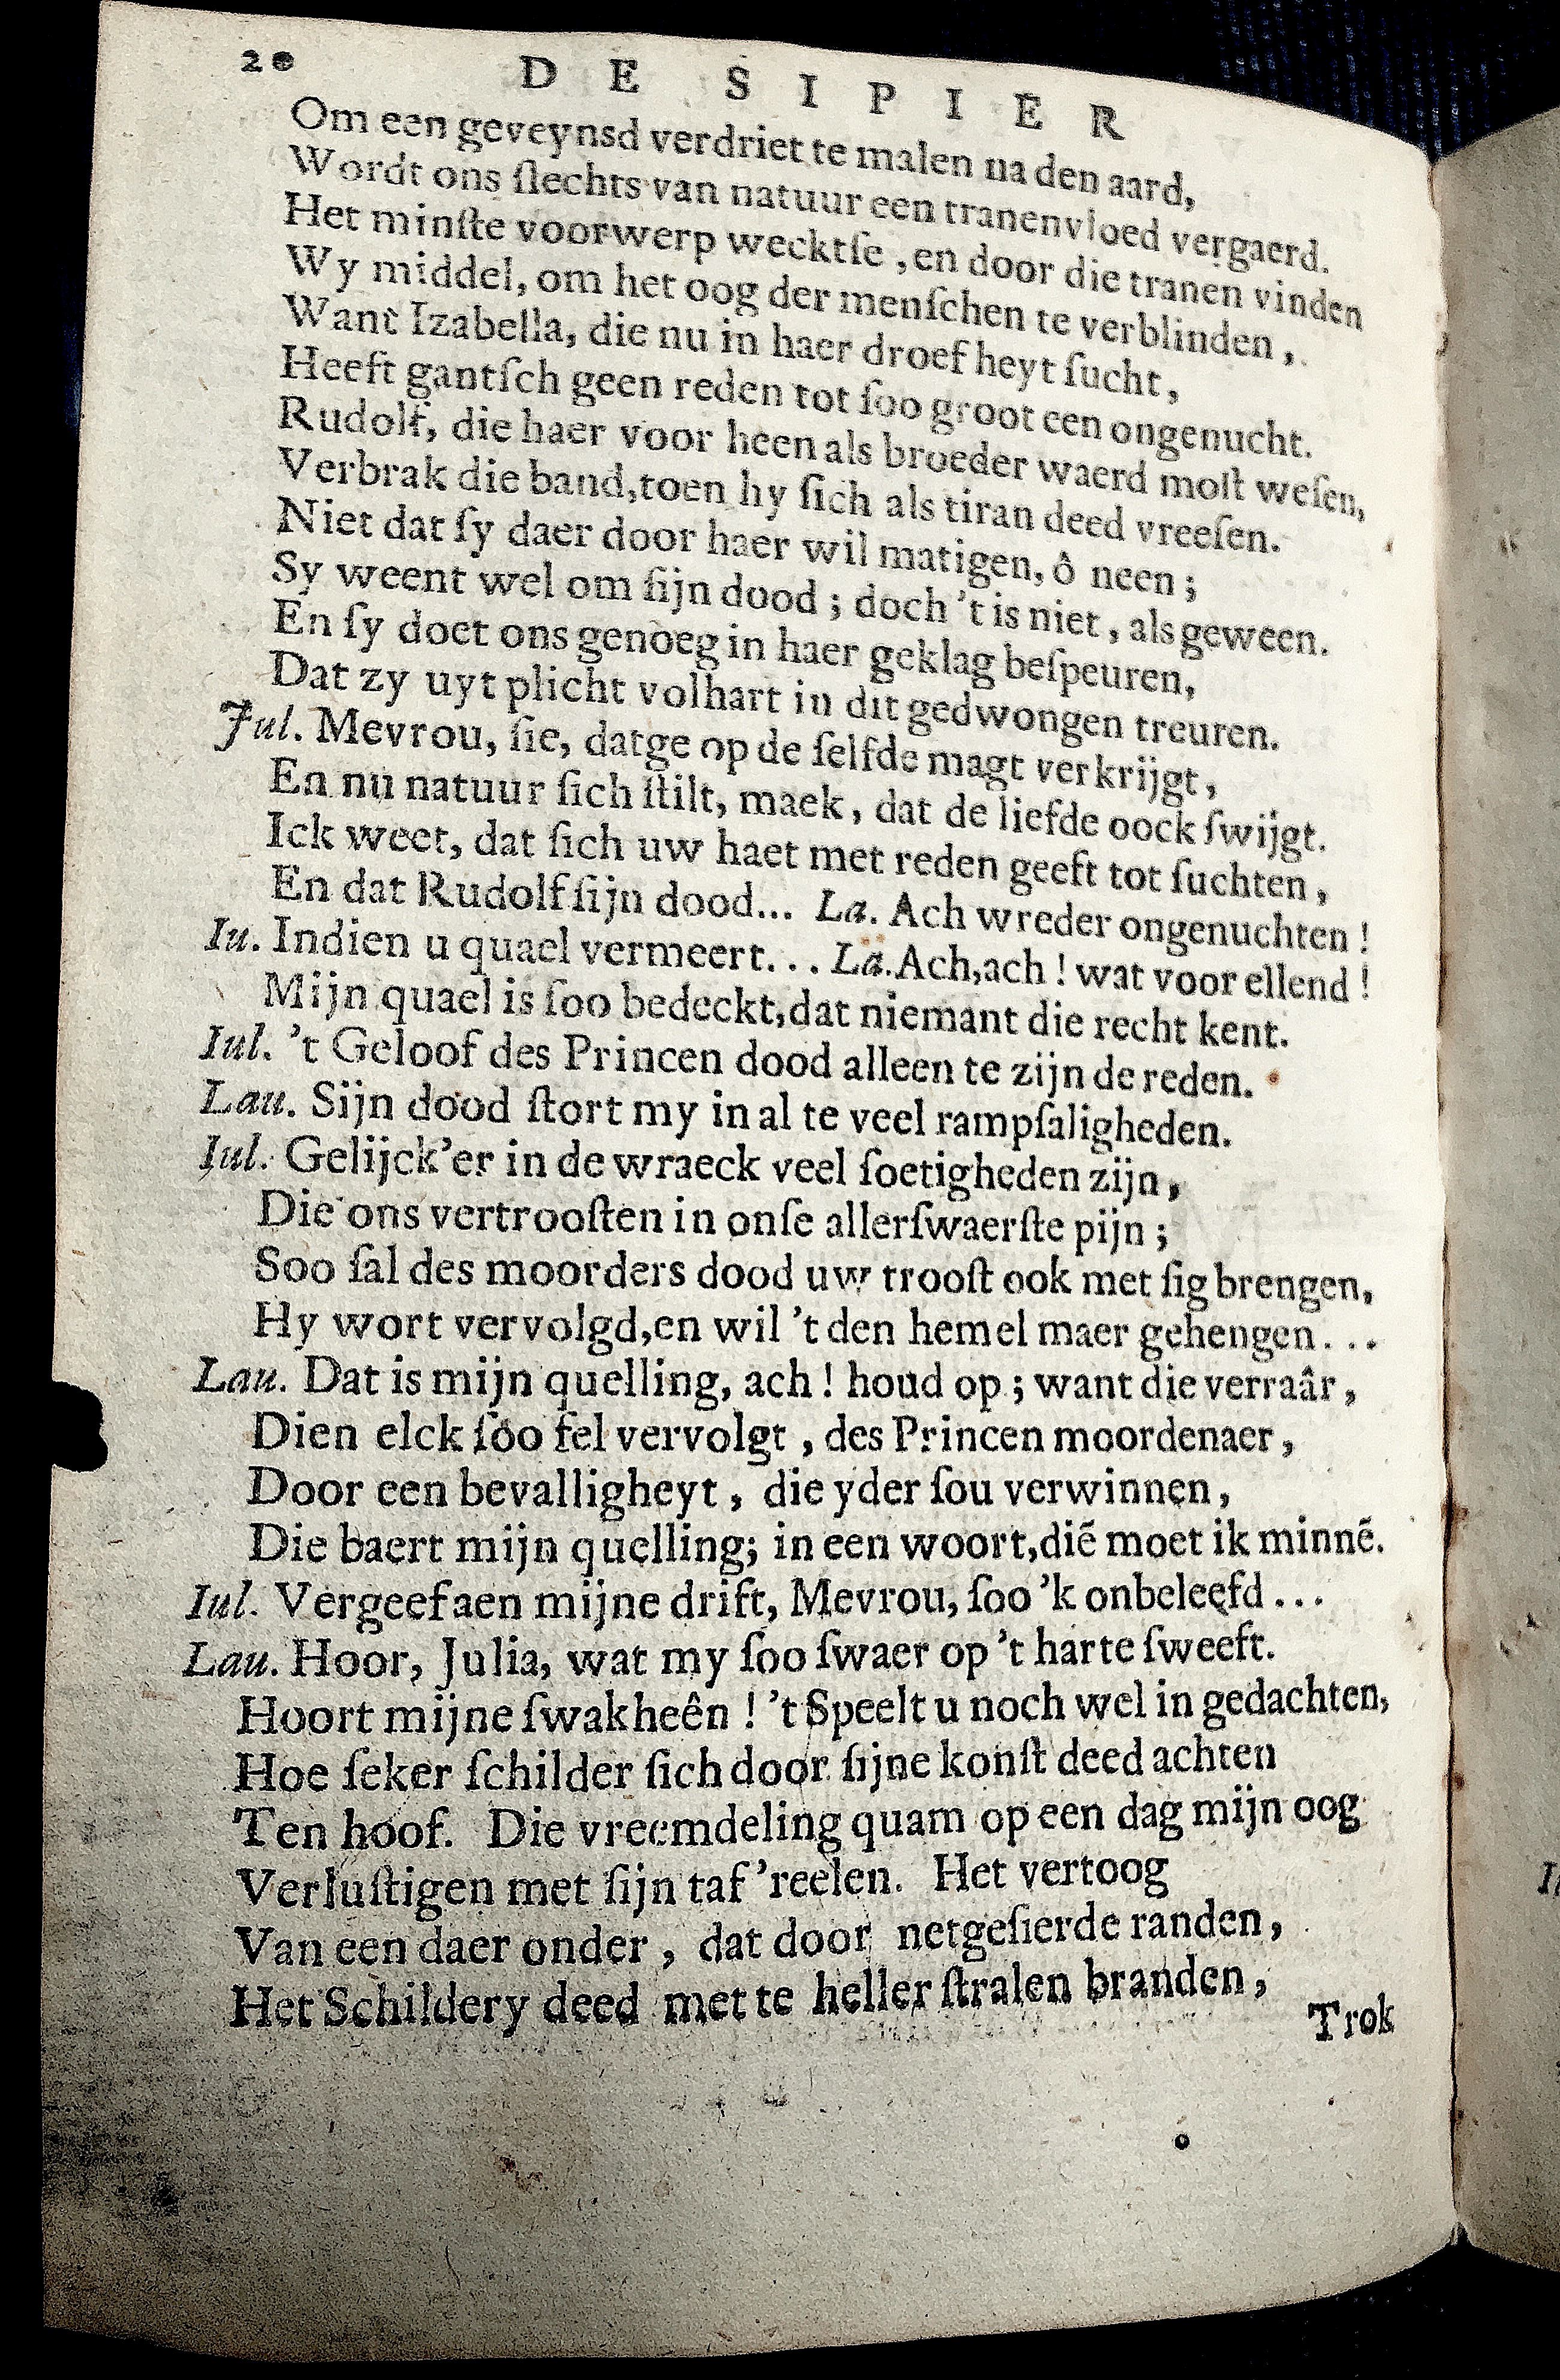 20 DE SIPIER
Om een geveynsd verdriet te malen na den aard,
Wordt ons ſlechts van natuur een tranenvloed vergaerd.
Het minſte voorwerp wecktſe, en door die tranen vinden
Wy middel, om het oog der menſchen te verblinden,
Want Izabella, die nu in haer droef heyt ſucht,
Heeft gantſch geen reden tot ſoo groot een ongenucht.
Rudolf, die haer voor heen als broeder waerd moſt weſen,
Verbrak die band, toen hy ſich als tiran deed vreeſen.
Niet dat ſy daer door haer wil matigen, ô neen;
Sy weent wel om ſijn dood; doch 't is niet, als geween.
En ſy doet ons genoeg in haer geklag beſpeuren,
Dat zy uyt plicht volhart in dit gedwongen treuren.
Jul. Mevrou, ſie, datge op de ſelfde magt verkrijgt,
En nu natuur ſich ſtilt, maek, dat de liefde oock ſwijgt.
Ick weet, dat ſich uw haet met reden geeft tot ſuchten,
En dat Rudolf ſijn dood... La. Ach wreder ongenuchten!
Iu. Indien u quael vermeert... La. Ach, ach! wat voor ellend!
Mijn quael is ſoo bedeckt, dat niemant die recht kent.
Iul. 't Geloof des Princen dood alleen te zijn de reden.
Lau. Sijn dood ſtort my in al te veel rampſaligheden.
Iul. Gelijck'er in de wraeck veel ſoetigheden zijn,
Die ons vertrooſten in onſe allerſwaerſte pijn;
Soo ſal des moorders dood uw trooſt ook met ſig brengen,
Hy wort vervolgd, en wil 't den hemel maer gehengen...
Lau. Dat is mijn quelling, ach! houd op; want die verraâr,
Dien elck ſoo fel vervolgt, des Princen moordenaer,
Door een bevalligheyt, die yder ſou verwinnen,
Die baert mijn quelling; in een woort, diē moet ik minnē.
Iul. Vergeef aen mijne drift, Mevrou, ſoo 'k onbeleefd...
Lau. Hoor, Julia, wat my ſoo ſwaer op 't harte ſweeft.
Hoort mijne ſwakheên! 't Speelt u noch wel in gedachten,
Hoe ſeker ſchilder ſich door ſijne konſt deed achten
Ten hoof. Die vreemdeling quam op een dag mijn oog
Verluſtigen met ſijn taf'reelen. Het vertoog
Van een daer onder, dat door netgeſierde randen,
Het Schildery deed met te heller ſtralen branden,
Trok